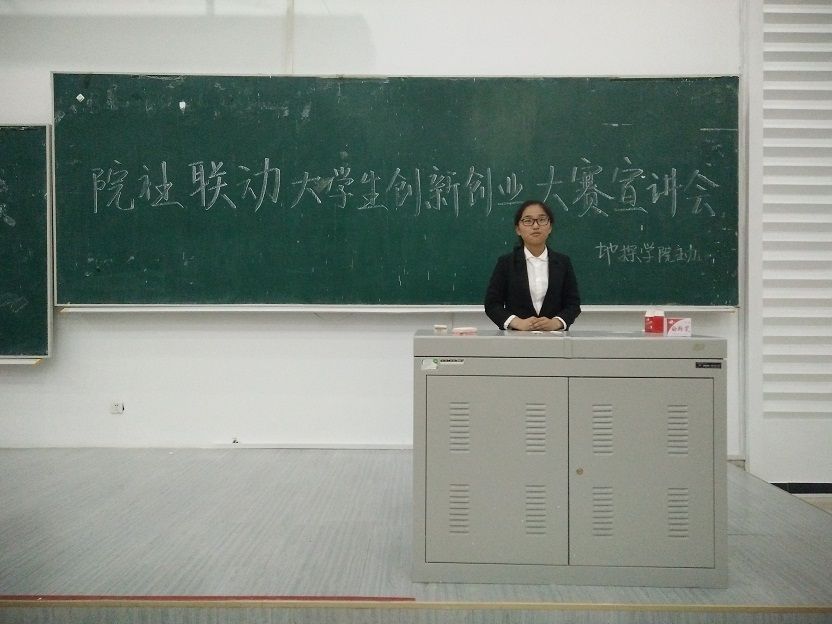 院社联动大学生创新创业大赛宣讲会
地探学院主办